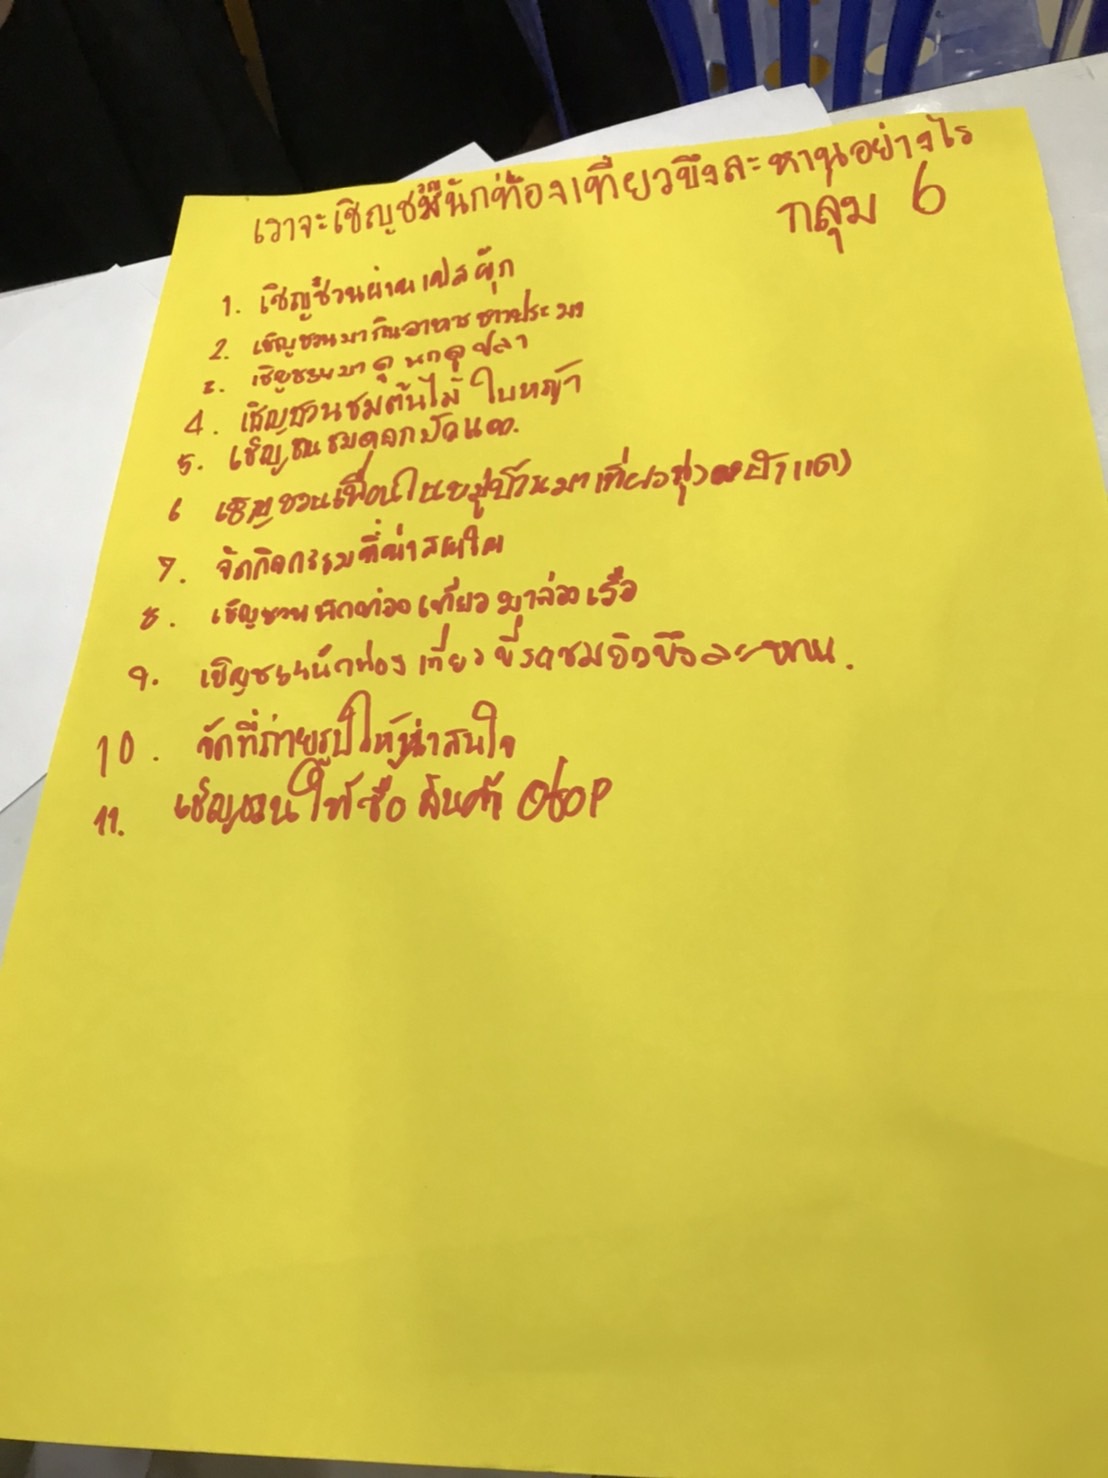 เราจะเชิญชวนนักท่องเที่ยวบึงละหานอย่างไร
กลุ่ม 6
1. เชิญชวนผ่านเฟสบุ๊ก
2. เชิญชวนมากินอาหารชาวประมง
3. เชิญชวนมาดูนกดูปลา
4. เชิญชวนชมต้นไม้ ใบหญ้า
5. เชิญชวนชมดอกบัวแดง.
6 เชิญชวนเพื่อนในหมู่บ้านมาเที่ยว
7. จัดกิจกรรมที่น่าสนใจ
8. เชิญชวนนักท่องเที่ยวมาล่องเรือ
9. เชิญชวนนักท่องเที่ยวขี่รถชมวิวบึงละหาน.
10. จัดที่ถ่ายรูปให้น่าสนใจ
11. เชิญชวนให้ซื้อสินค้า OtoP